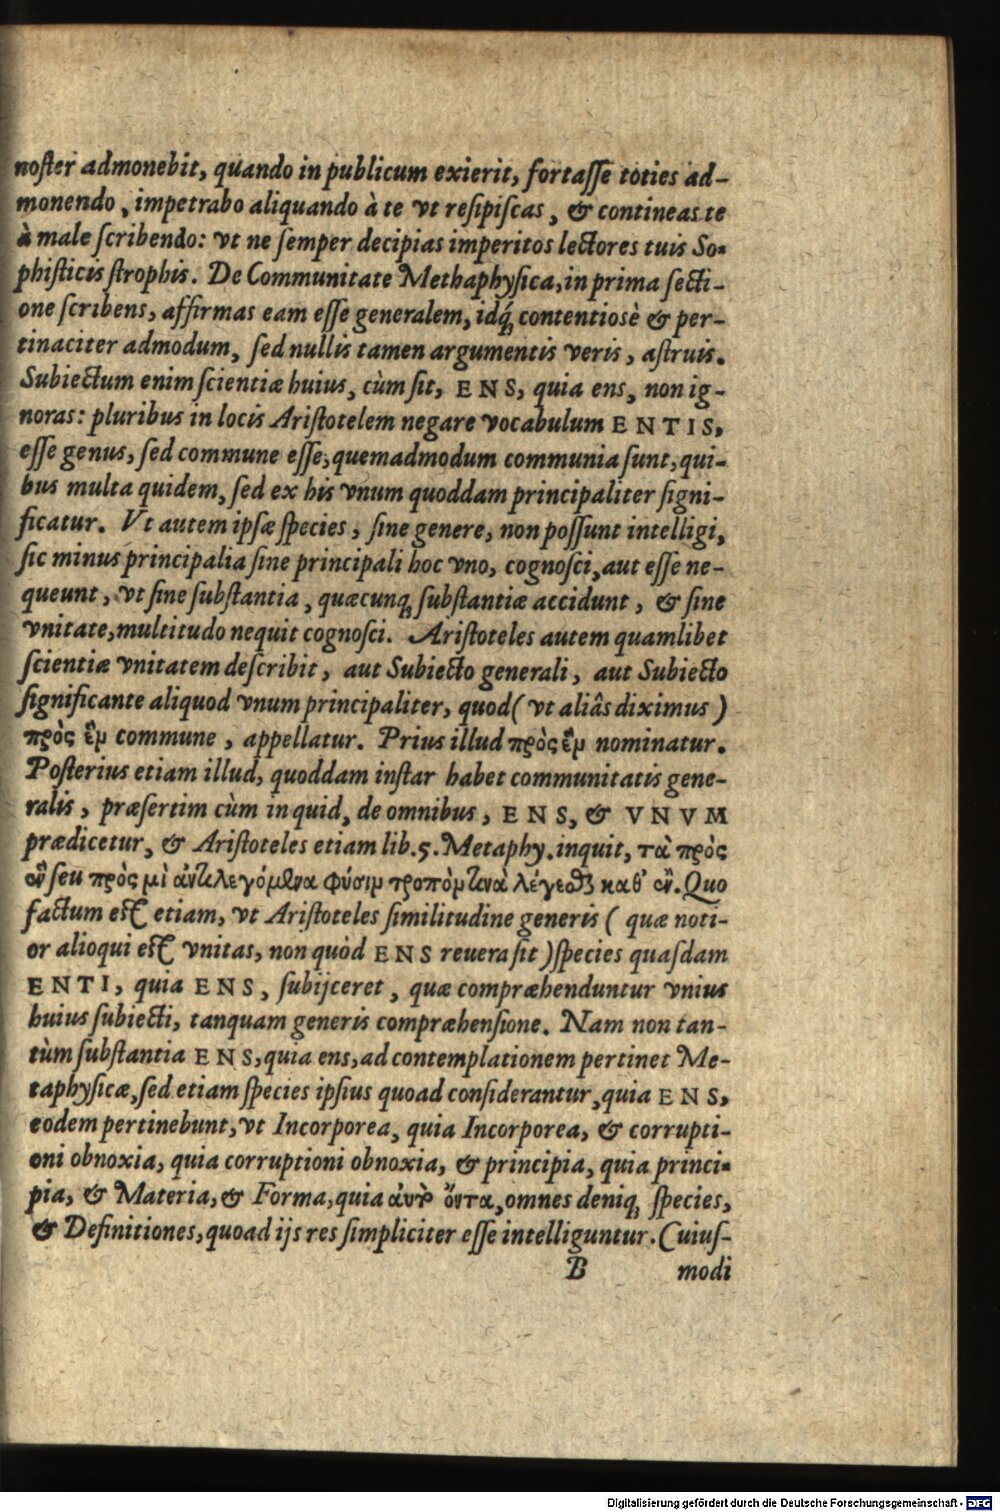 noſter admonebit, quando in publicum exierit, fortaſſe toties ad-
monendo, impetrabo aliquando à te vt reſipiſcas, & contineas te
à male ſcribendo: vt ne ſemper decipias imperitos lectores tuis So-
phiſticis ſtrophis. De Communitate Methaphyſica, in prima ſecti-
one ſcribens, affirmas eam eſſe generalem, idq́; contentioſè & per-
tinaciter admodum, ſed nullis tamen argumentis veris, aſtruis.
Subiectum enim ſcientiæ huius, cùm ſit, ENS, quia ens, non ig-
noras: pluribus in locis Ariſtotelem negare vocabulum ENTIS,
eſſe genus, ſed commune eſſe, quemadmodum communia ſunt, qui-
bus multa quidem, ſed ex his vnum quoddam principaliter ſigni-
ficatur. Vt autem ipſæ ſpecies, ſine genere, non poſſunt intelligi,
ſic minus principalia ſine principali hoc vno, cognoſci, aut eſſe ne-
queunt, vt ſine ſubſtantia, quæcunq; ſubſtantiæ accidunt, & ſine
vnitate, multitudo nequit cognoſci. Ariſtoteles autem quamlibet
ſcientiæ vnitatem deſcribit, aut Subiecto generali, aut Subiecto
ſignificante aliquod vnum principaliter, quod (vt aliâs diximus)
πρὸς ἓμ commune, appellatur. Prius illud πρὸς ἓμ nominatur.
Poſterius etiam illud, quoddam inſtar habet communitatis gene-
ralis, præſertim cùm in quid, de omnibus, ENS, & VNVM
prædicetur, & Ariſtoteles etiam lib. 5. Metaphy. inquit, τὰ πρὸς
ἓν ſeu πρὸς μὶ φύσιμ λέγεσθ καθ' ἓν. Quo
factum eſt etiam, vt Ariſtoteles ſimilitudine generis (quæ noti-
or alioqui eſt vnitas, non quòd ENS reuera ſit) ſpecies quaſdam
ENTI, quia ENS, ſubijceret, quæ compræhenduntur vnius
huius ſubiecti, tanquam generis compræhenſione. Nam non tan-
tùm ſubſtantia ENS, quia ens, ad contemplationem pertinet Me-
taphyſicæ, ſed etiam ſpecies ipſius quoad conſiderantur, quia ENS,
eodem pertinebunt, vt Incorporea, quia Incorporea, & corrupti-
oni obnoxia, quia corruptioni obnoxia, & principia, quia princi-
pia, & Materia, & Forma, quia ὄντα, omnes deniq; ſpecies,
& Definitiones, quoad ijs res ſimpliciter eſſe intelliguntur. Cuiuſ-
B modi
Digitalisierung gefördert durch die Deutsche Forschungsgemeinschaft - DFG